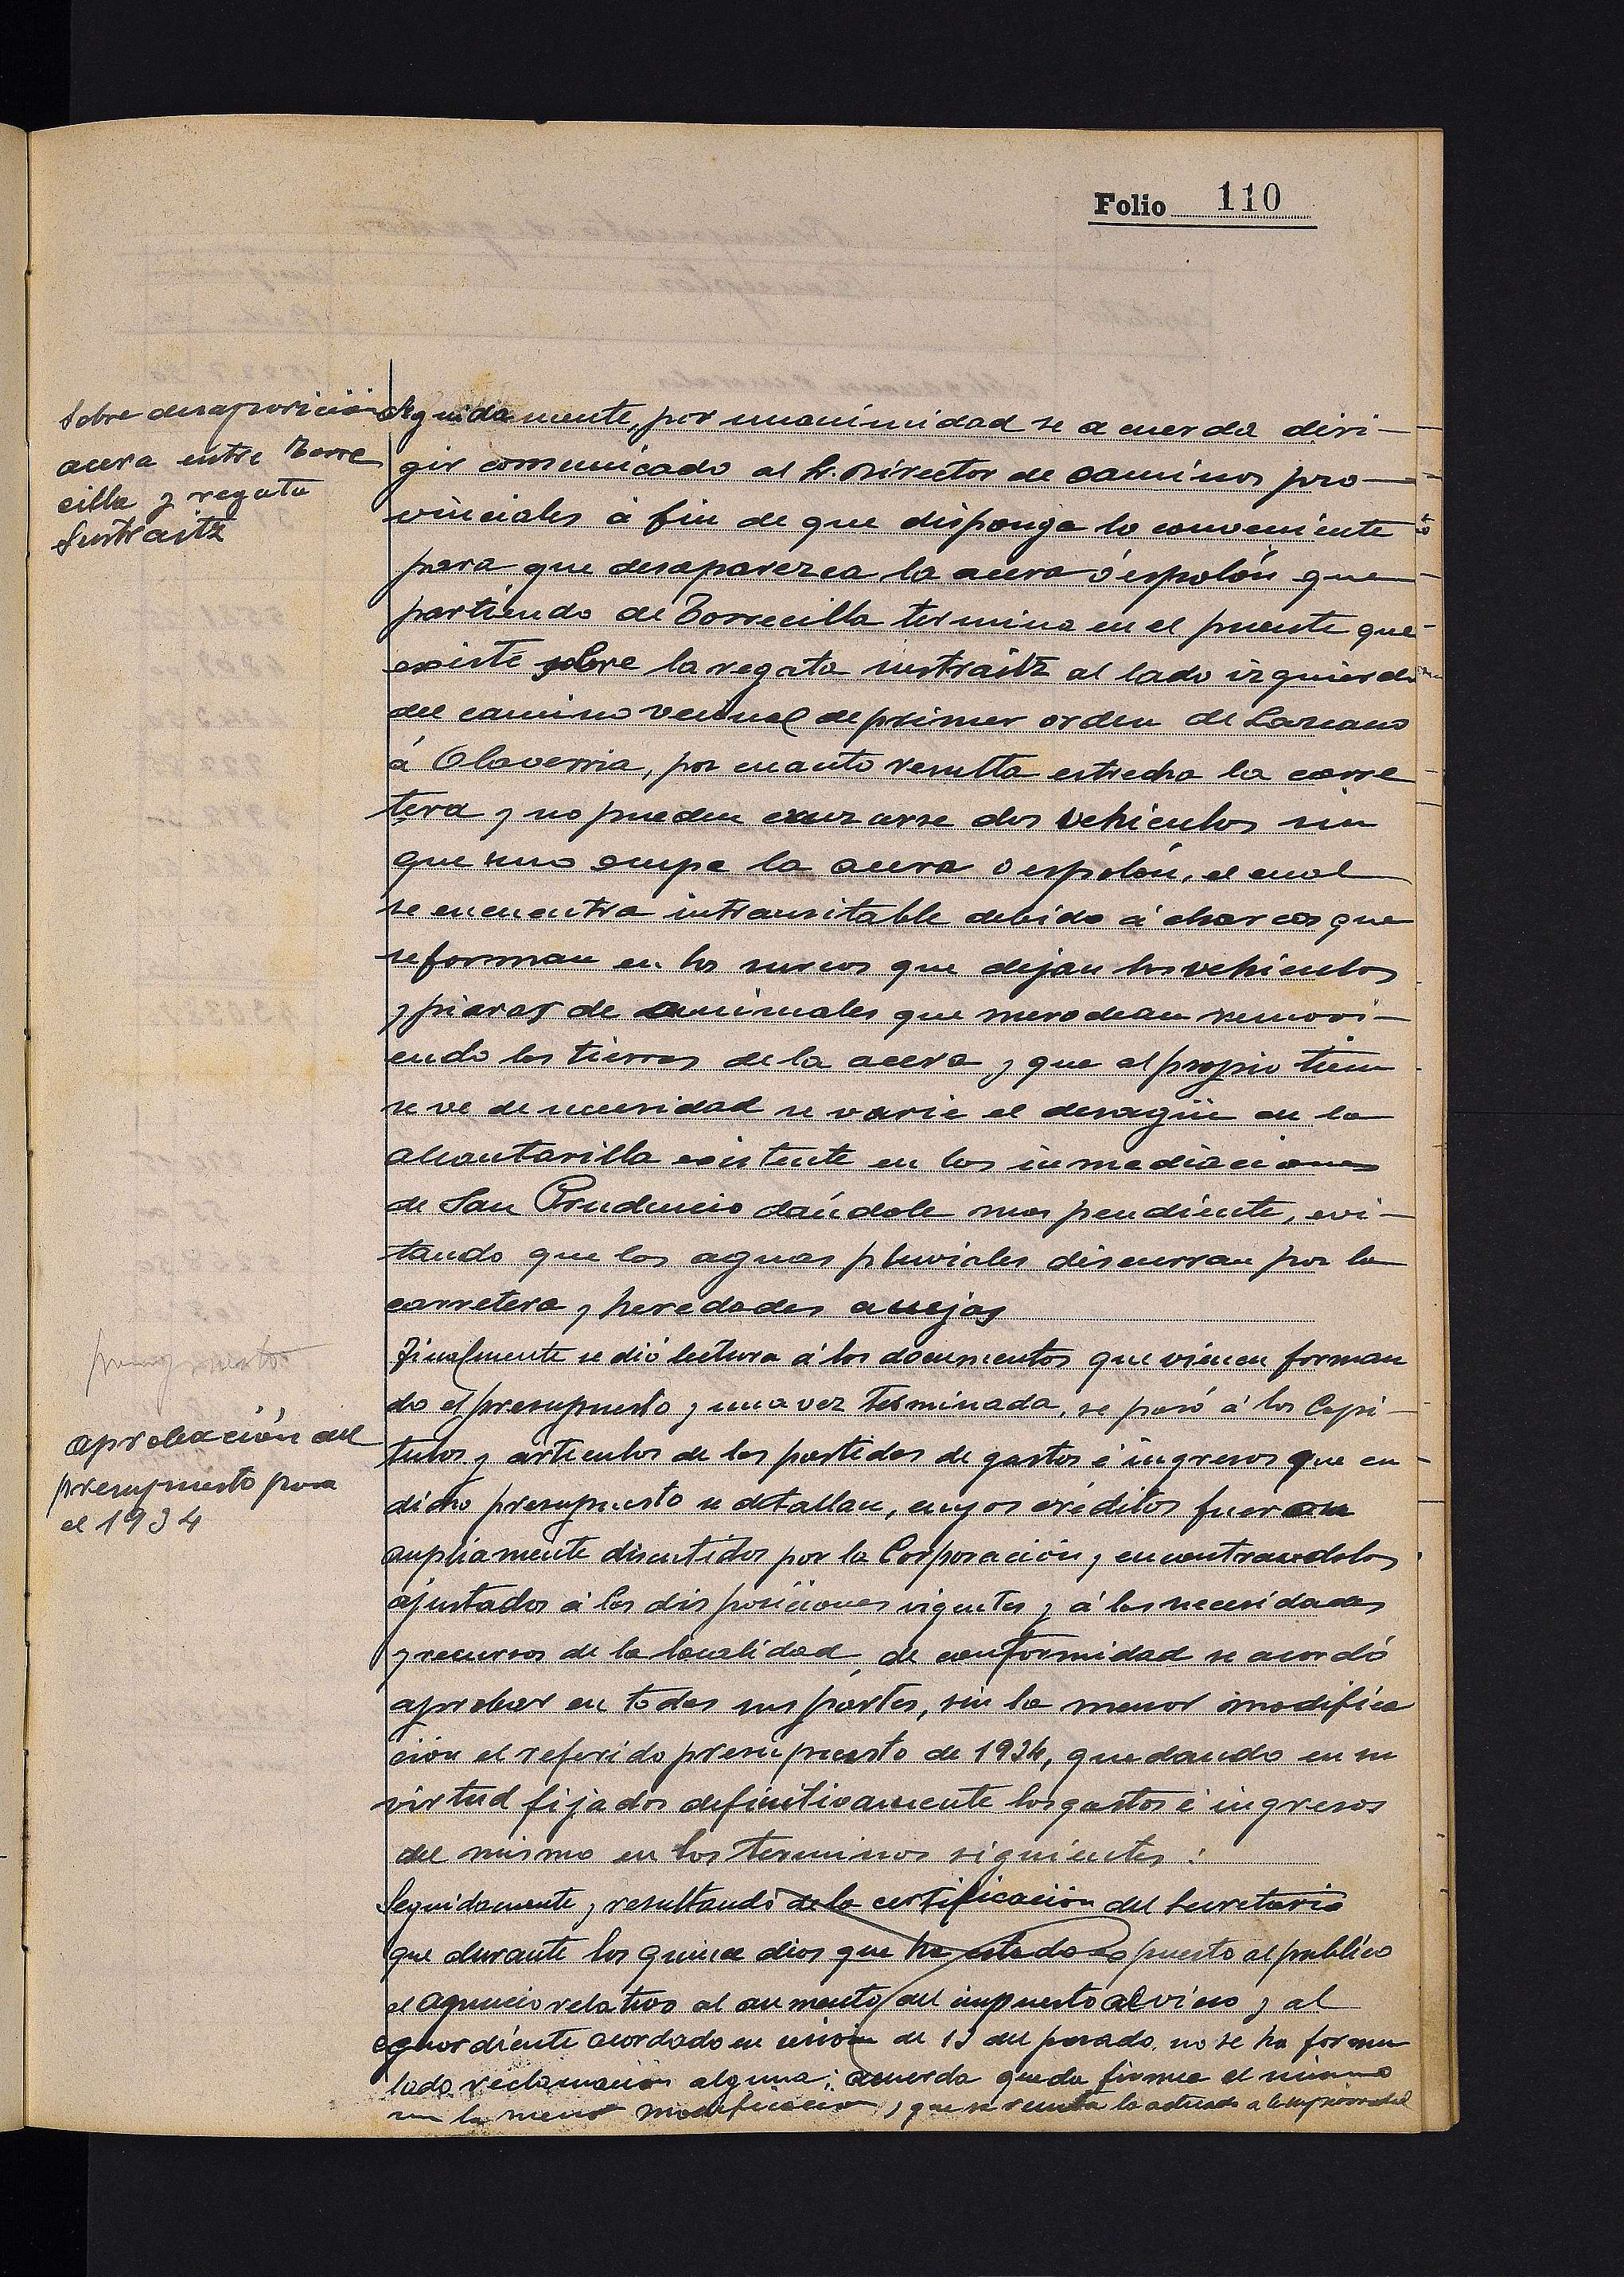 Folio 110
Sobre desaparición
acera entre Torre
cilla y regata
Sustraitz
Seguidamente, por unanimidad se acuerda diri-
gir comunicado al Sr. Director de caminos pro-
vinciales á fin de que disponga lo conveniente
para que desaparezca la acera ó espolón que
partiendo de Torrecilla termina en el puente que
existe sobre la regata sustraitz al lado izquierdo
del camino vecinal de primer orden de Lazcano
á Olaverria, por cuanto resulta estrecha la carre
tera y no pueden cruzarse dos vehiculos sin
que uno ocupe la acera o espolón, el cual
se encuentra intransitable debido á charcos que
se forman en los surcos que dejan los vehiculos
y piaras de animales que merodean removi-
endo las tierras de la acera, y que al propio tiem
se ve de necesidad se varie el desagüe de la
alcantarilla existente en las inmediaciones
de San Prudencio dándole mas pendiente, evi-
tando que las aguas pluviales discurran por la
carretera y heredades anejas
presupuesto
Aprobación del
presupuesto para
el 1934
Finalmente se dió lectura á los documentos que vienen forman
do el presupuesto y una vez terminada, se pasó á los Capi-
tulos y articulos de las partidas de gastos é ingresos que en
dicho presupuesto se detallan, cuyos créditos fueron
ampliamente discutidos por la Corporación, y encontrandolos
ajustados á las disposiciones vigentes y á las necesidades
y recursos de la localidad, de conformidad se acordó
aprobar en todas sus partes, sin la menor modifica
ción el referido presupuesto de 1934, quedando en su
virtud fijados definitivamente los gastos é ingresos
del mismo en los terminos siguientes:
Seguidamente, resultando de la certificación del Secretario
que durante los quince dias que ha estado expuesto al publico
el anuncio relativo al aumento del impuesto al vino y al
aguardiente acordado en sesion de 13 del pasado, no se ha formu
lado reclamación alguna; acuerda queda firme el mismo
sin la menor modificacion, y que se remita lo actuado a la superioridad